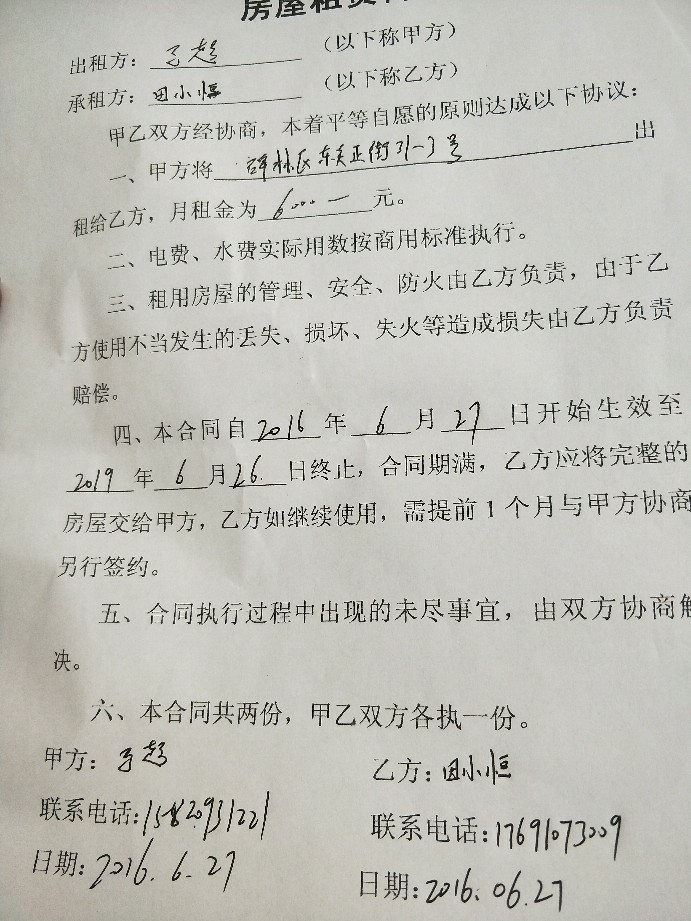 房屋租赁
出租方：于超（以下称甲方）
承租方：田小恒（以下称乙方）
甲乙双方经协商，本着平等自愿的原则达成以下协议：
一、甲方将碑林区东关正街31-3号出
租给乙方，月租金为6000一元。
二、电费、水费实际用数按商用标准执行。
三、租用房屋的管理、安全、防火由乙方负责，由于乙
方使用不当发生的丢失、损坏、失火等造成损失由乙方负责
赔偿。
四、本合同自2016年6月27日开始生效至
2019年6月26日终止，合同期满，乙方应将完整的
房屋交给甲方，乙方如继续使用，需提前1个月与甲方协商
另行签约。
五、合同执行过程中出现的未尽事宜，由双方协商解
决。
六、本合同共两份，甲乙双方各执一份。
甲方：于超
乙方：田小恒
联系电话：
联系电话：17691073009
日期：2016.6.27
日期：2016.06.27